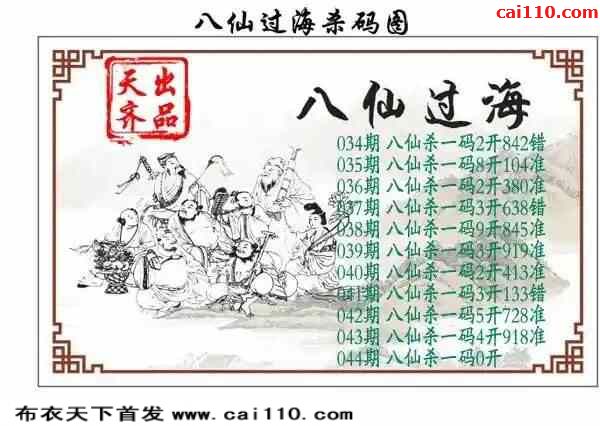 八仙过海杀码图
cai110.com
天齐
出品
八仙过海
034期 八仙杀一码2开842错
035期 八仙杀一码8开104准
036期 八仙杀一码2开380准
037期 八仙杀一码3开638错
038期 八仙杀一码9开845准
039期 八仙杀一码3开919准
040期 八仙杀一码2开413准
041期 八仙杀一码3开133错
042期 八仙杀一码5开728准
043期 八仙杀一码4开918准
044期 八仙杀一码0开
布衣天下首发 www.cai110.com